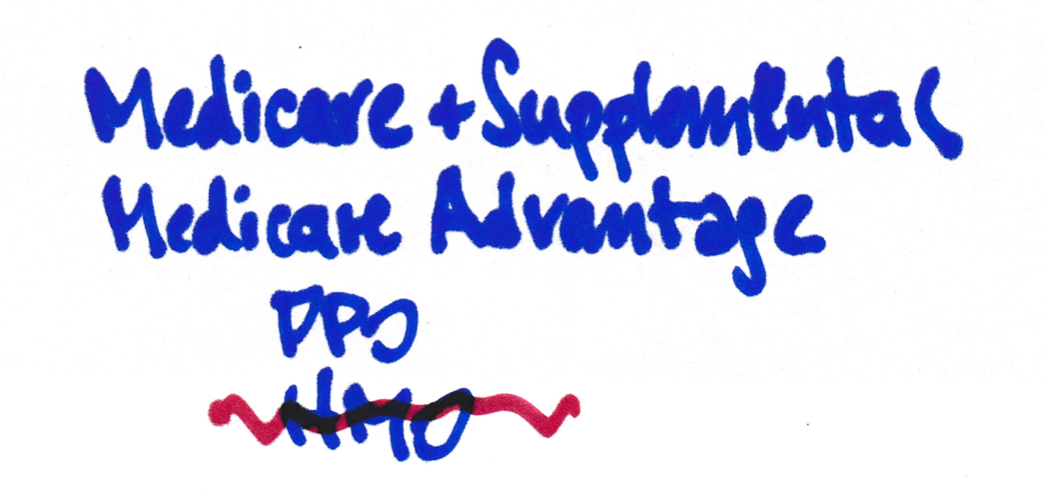 Medicare + Supplemental
Medicare Advantage
PPO
HMO